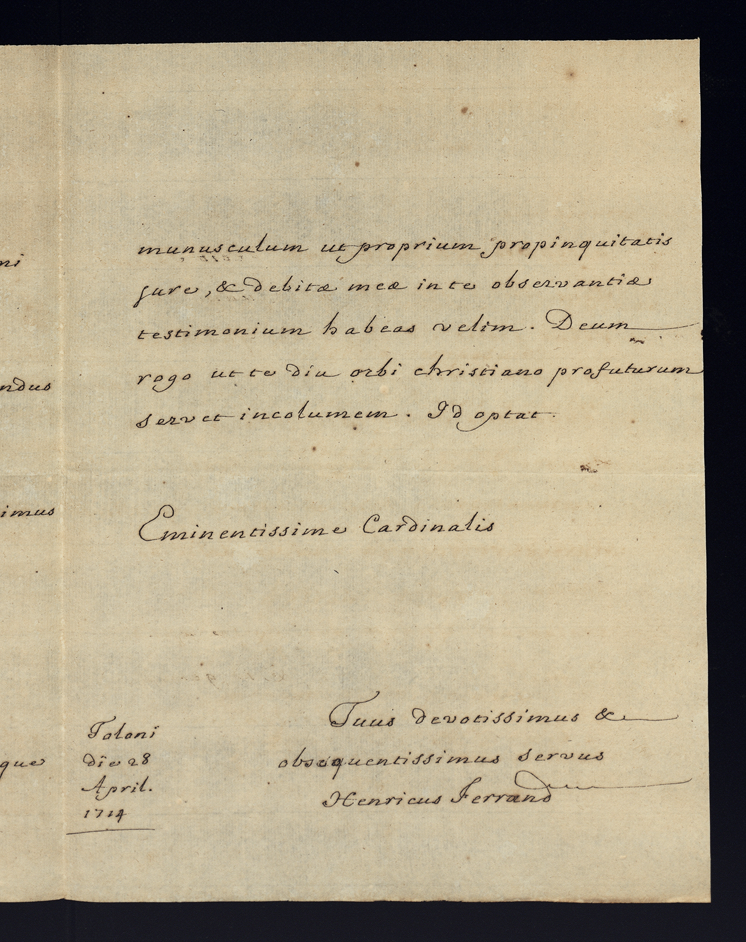 ni
ndus
imus
que
munusculum ut proprium propinquitatis
jure, & debitæ meæ in te observantiæ
testimonium habeas velim. Deum
rogo ut te diu orbi christiano profuturum
servet incolumem. Id optat.
Eminentissime Cardinalis
Toloni
die 28
April.
1714
Tuus devotissimus &
obsequentissimus servus
Henricus Ferrand